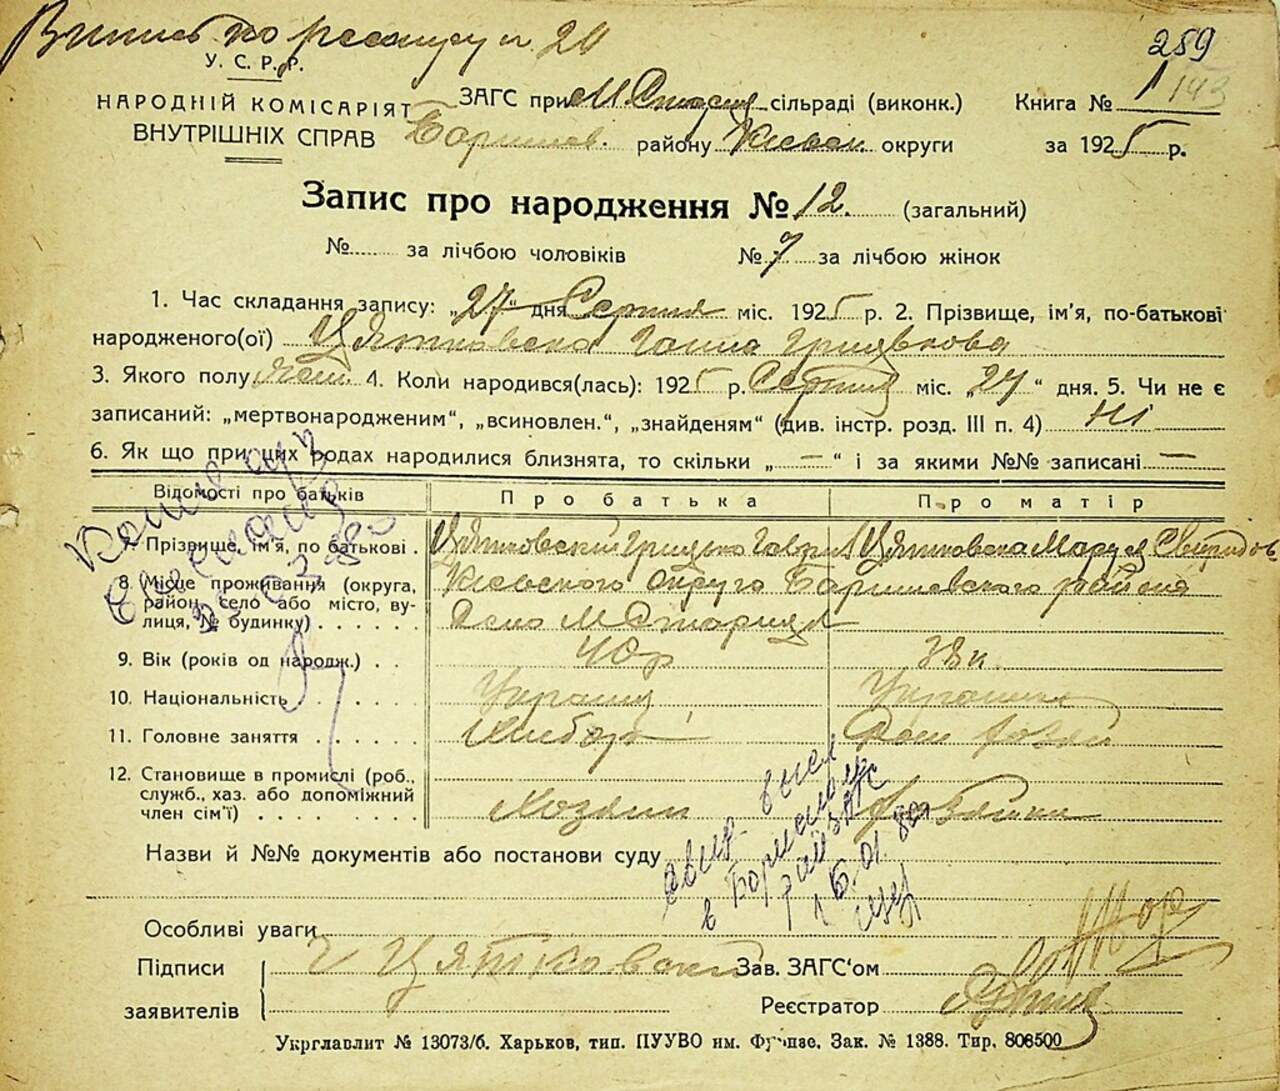 259
У. С. Р. Р.
НАРОДНІЙ КОМІСАРІЯТ
ВНУТРІШНІХ СПРАВ
ЗАГС при М Стариця сільраді (виконк.)
Книга № 1 143
Баришев. району Київськ округи
за 1925 р.
Запис про народження № 12. (загальний)
№ за лічбою чоловіків № 7 за лічбою жінок
1. Час складання запису: „27“ дня Серпня міс. 1925 р. 2. Прізвище, ім'я, по-батькові
народженого(ої) Цятковська Ганна Грицькова
3. Якого полу жін. 4. Коли народився(лась): 1925 р. Серпня міс. „27“ дня. 5. Чи не є
записаний: „мертвонародженим“, „всиновлен.“, „знайденям“ (див. інстр. розд. III п. 4) Ні
6. Як що при цих родах народилися близнята, то скільки „—“ і за якими №№ записані —
Відомості про батьків
Про батька
Про матір
7. Прізвище, ім'я, по батькові
Цятковский Грицько Гаврил
Цятковска Маруся Свиридов
8. Місце проживання (округа,
район, село або місто, ву-
лиця, № будинку)
Киевского округа Баришевского района
Село М Стариця
9. Вік (років од народж.)
40р
38л
10. Національність
Українец
Украинка
11. Головне заняття
Хлибороб
Дом хозяй
12. Становище в промислі (роб.,
служб., хаз. або допоміжний
член сім'ї)
Хозяин
Назви й №№ документів або постанови суду
в Бориспольс
райЗАГС
16.01.80
Особливі уваги
Підписи
заявителів
Г Цятковский
Зав. ЗАГС'ом
Реєстратор
Укрглавліт № 13073/б. Харьков, тип. ПУУВО им. Фрунзе. Зак. № 1388. Тир. 806500